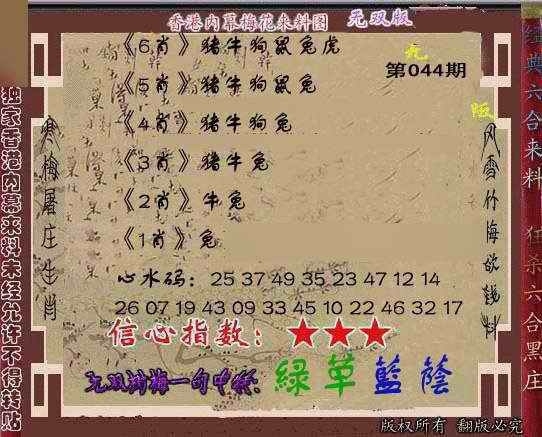 香港内幕梅花来料图 无双版
《6肖》猪牛狗鼠兔虎
第044期
《5肖》猪牛狗鼠兔
《4肖》猪牛狗兔
《3肖》猪牛兔
《2肖》牛兔
《1肖》兔
心水码：25 37 49 35 23 47 12 14
26 07 19 43 09 33 45 10 22 46 32 17
信心指数：★★★
一句中特：綠草藍蔭
版权所有 翻版必究
独家香港内幕来料未经允许不得转贴
寒梅屠庄生肖
经典六合来料 狂杀六合黑庄